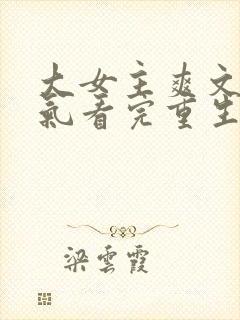 大女主爽文
氣看完重生
梁雲霞